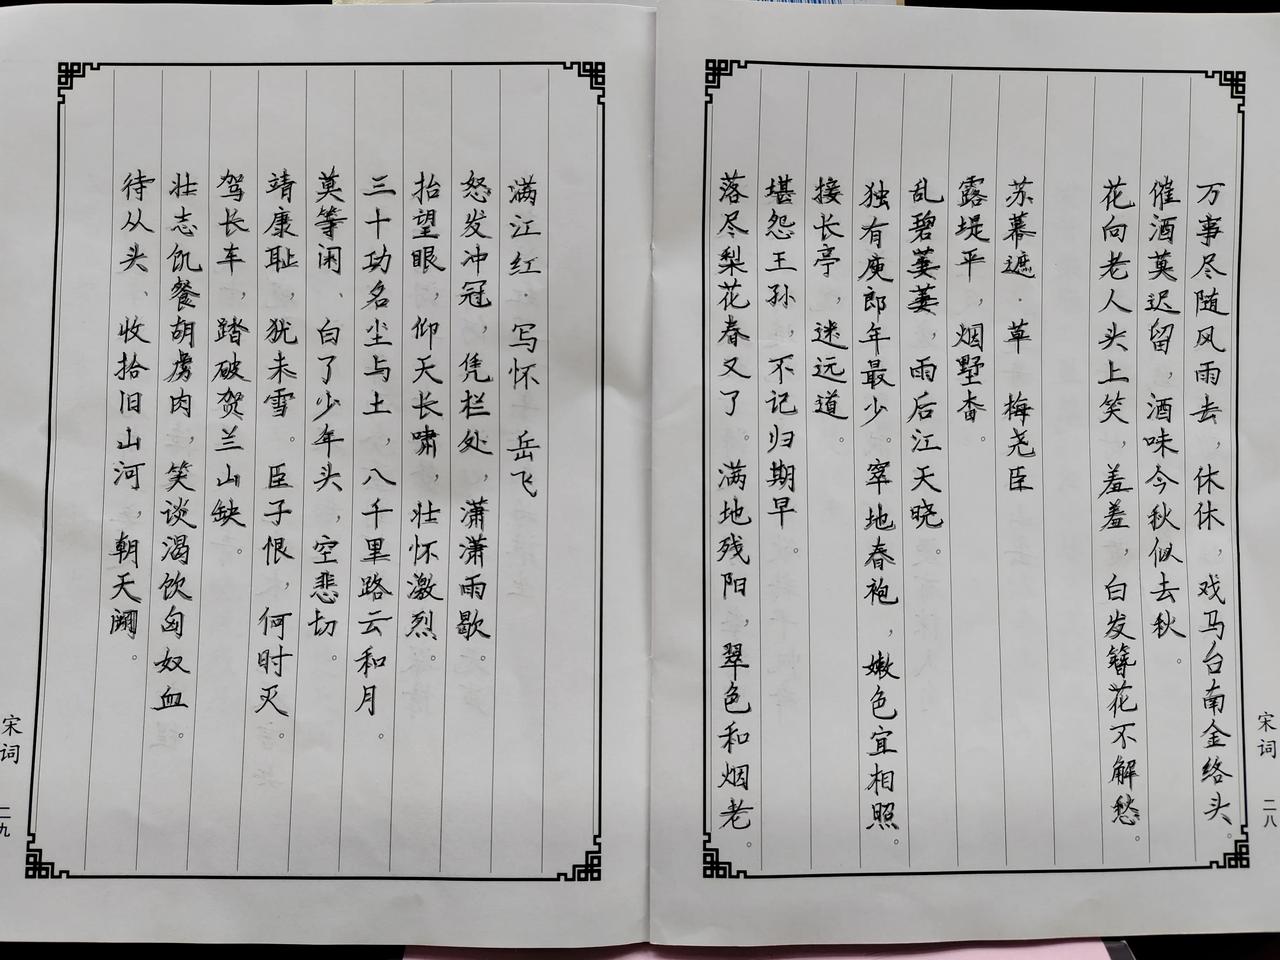 万事尽随风雨去，休休，戏马台南金络头。
催酒莫迟留，酒味今秋似去秋。
花向老人头上笑，羞羞，白发簪花不解愁。
苏幕遮·草 梅尧臣
露堤平，烟墅杳。
乱碧萋萋，雨后江天晓。
独有庾郎年最少。窣地春袍，嫩色宜相照。
接长亭，迷远道。
堪怨王孙，不记归期早。
落尽梨花春又了。满地残阳，翠色和烟老。
宋词 二八
满江红·写怀 岳飞
怒发冲冠，凭栏处，潇潇雨歇。
抬望眼，仰天长啸，壮怀激烈。
三十功名尘与土，八千里路云和月。
莫等闲、白了少年头，空悲切。
靖康耻，犹未雪。臣子恨，何时灭。
驾长车，踏破贺兰山缺。
壮志饥餐胡虏肉，笑谈渴饮匈奴血。
待从头、收拾旧山河，朝天阙。
宋词 二九